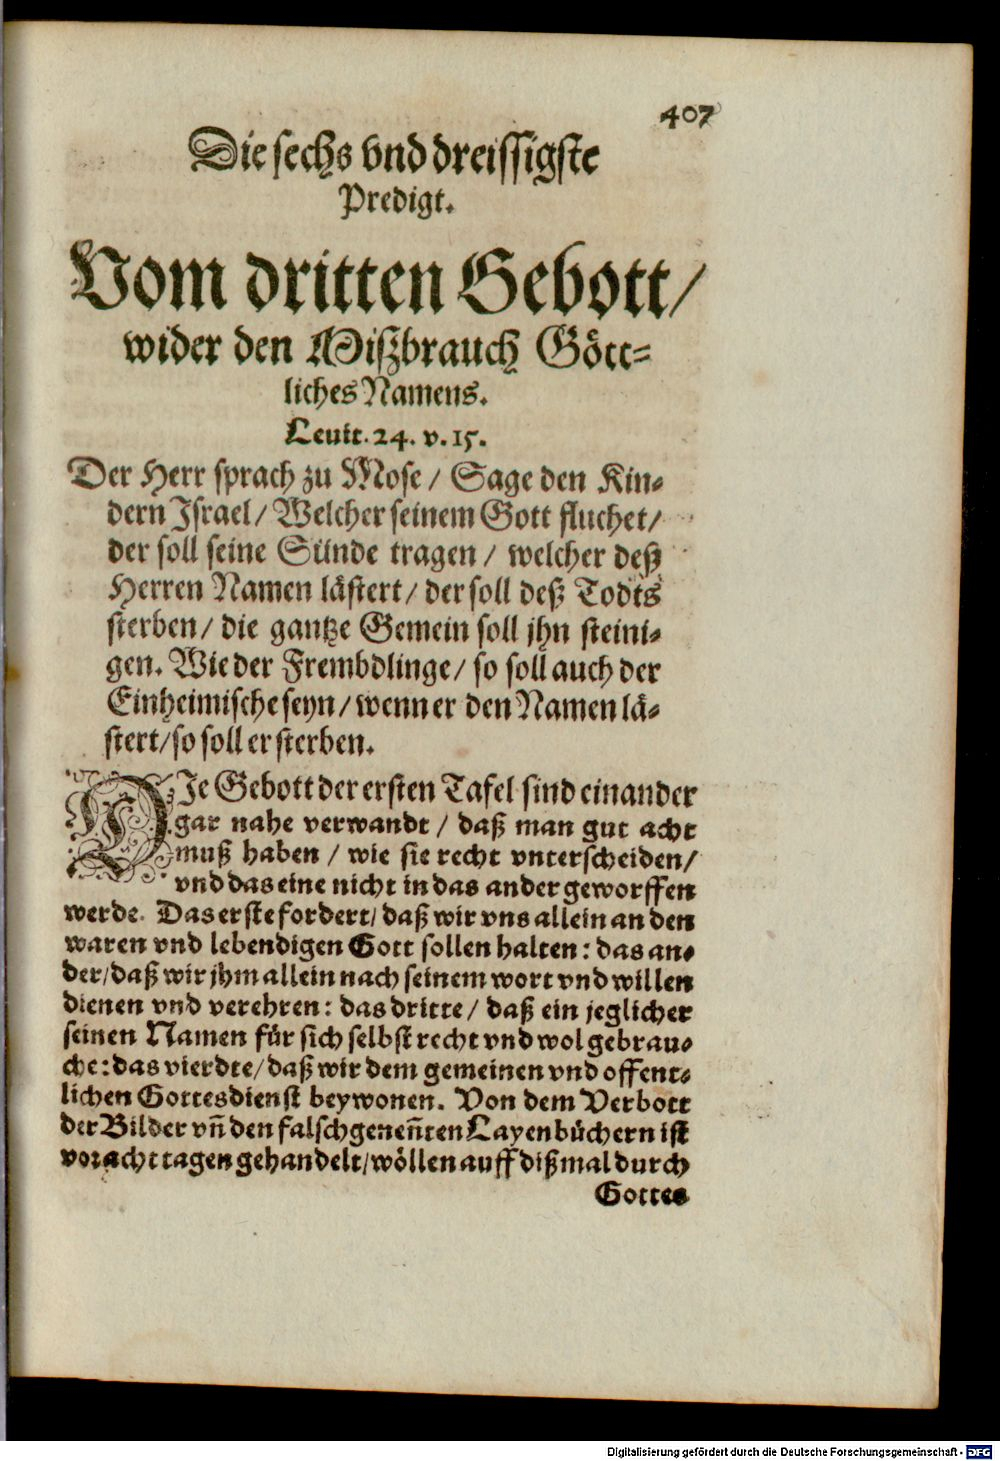 407
Die sechs vnd dreissigste
Predigt.
Vom dritten Gebott/
wider den Mißbrauch Gött-
liches Namens.
Levit. 24. v. 15.
Der Herr sprach zu Mose / Sage den Kin-
dern Israel / Welcher seinem Gott fluchet /
der soll seine Sünde tragen / welcher deß
Herren Namen lästert / der soll deß Todts
sterben / die gantze Gemein soll jhn steini-
gen. Wie der Frembdlinge / so soll auch der
Einheimische seyn / wenn er den Namen lä-
stert / so soll er sterben.
DJe Gebott der ersten Tafel sind einander
gar nahe verwandt / daß man gut acht
muß haben / wie sie recht vnterscheiden /
vnd das eine nicht in das ander geworffen
werde. Das erste fordert / daß wir vns allein an den
waren vnd lebendigen Gott sollen halten : das an-
der / daß wir jhm allein nach seinem wort vnd willen
dienen vnd verehren : das dritte / daß ein jeglicher
seinen Namen für sich selbst recht vnd wol gebrau-
che : das vierdte / daß wir dem gemeinen vnd offent-
lichen Gottesdienst beywonen. Von dem Verbott
der Bilder vn̄ den falschgenen̄ten Layenbüchern ist
vor acht tagen gehandelt / wöllen auff dißmal durch
Gottes
Digitalisierung gefördert durch die Deutsche Forschungsgemeinschaft - DFG